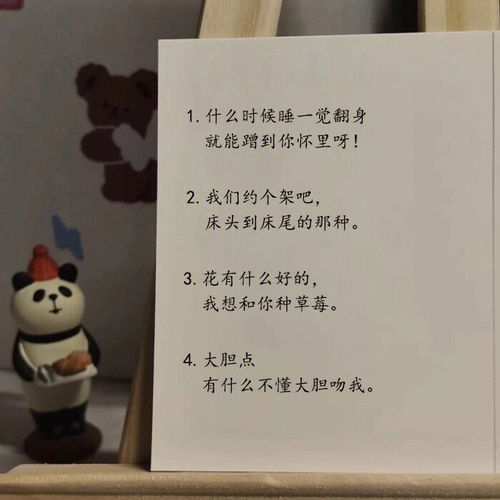 1. 什么时候睡一觉翻身
就能蹭到你怀里呀!
2. 我们约个架吧,
床头到床尾的那种。
3. 花有什么好的,
我想和你种草莓。
4. 大胆点
有什么不懂大胆吻我。